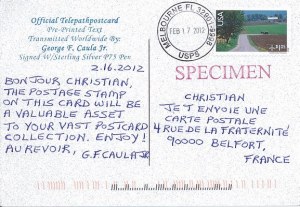 Official Telepathpostcard
Pre-Printed Text
Transmitted Worldwide By:
George F. Caula Jr.
Signed W/Sterling Silver PT5 Pen
2.16.2012
BONJOUR, CHRISTIAN,
THE POSTAGE STAMP
ON THIS CARD WILL BE
A VALUABLE ASSET
TO YOUR VAST POSTCARD
COLLECTION. ENJOY!
AU REVOIR, G.F.CAULA JR
MELBOURNE FL
FEB 17 2012
USPS
USA
SPECIMEN
CHRISTIAN
JE T ENVOIE UNE
CARTE POSTALE
4 RUE DE LA FRATERNITÉ
90000 BELFORT,
FRANCE